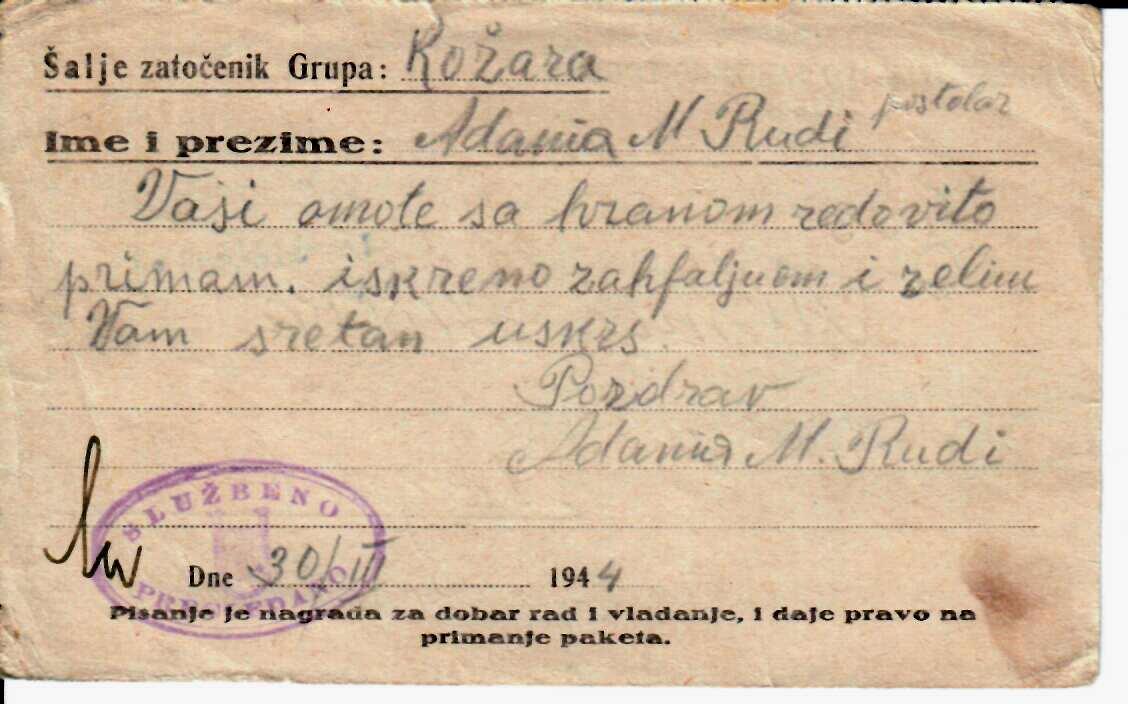 Šalje zatočenik Grupa: Kožara
Ime i prezime: Adania M Rudi postolar
Vaši omote sa hranom redovito
primam. iskreno zahfaljuom i zelim
Vam sretan uskrs.
Pozdrav
Adania M. Rudi
SLUŽBENO
PREGLEDANO
Dne 30/III 1944
Pisanje je nagrada za dobar rad i vladanje, i daje pravo na
primanje paketa.